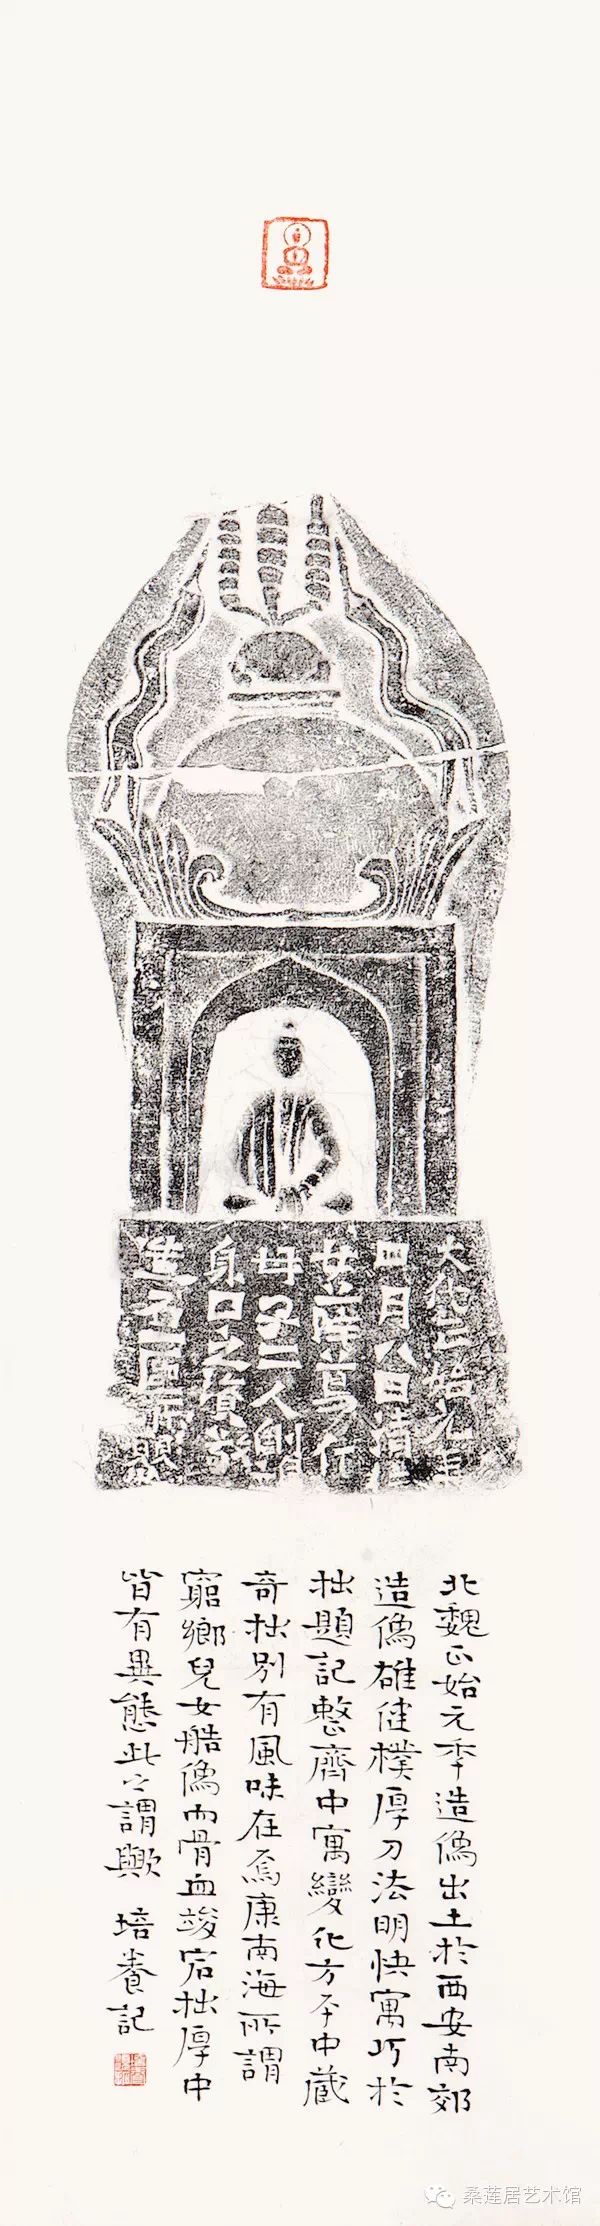 大代正始元年
四月八日清信
女薛茑行
母子二人
身口之資
造石一區
北魏正始元年造像出土於西安南郊
造像雄健樸厚刀法明快寓巧於
拙題記整齊中寓變化方平中藏
奇拙別有風味在焉康南海所謂
窮鄉兒女造像而骨血峻宕拙厚中
皆有異態此之謂歟 培養記
桑莲居艺术馆